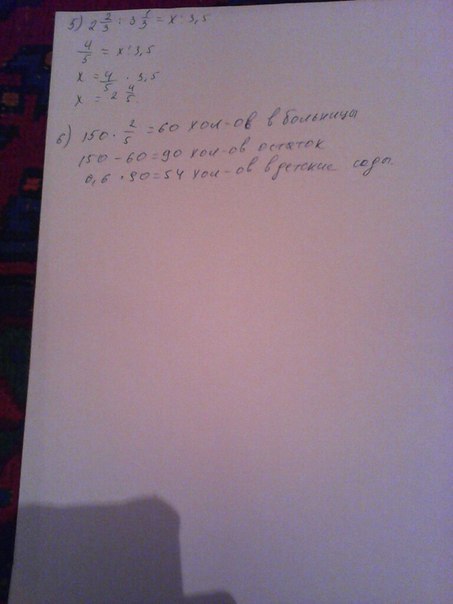 5) 2 2/3 : 3 1/3 = x : 3,5
4/5 = x : 3,5
x = 4/5 · 3,5
x = 2 4/5
6) 150 · 2/5 = 60 хол-ов в больницы
150 - 60 = 90 хол-ов остаток
0,6 · 90 = 54 хол-ов в детские сады.